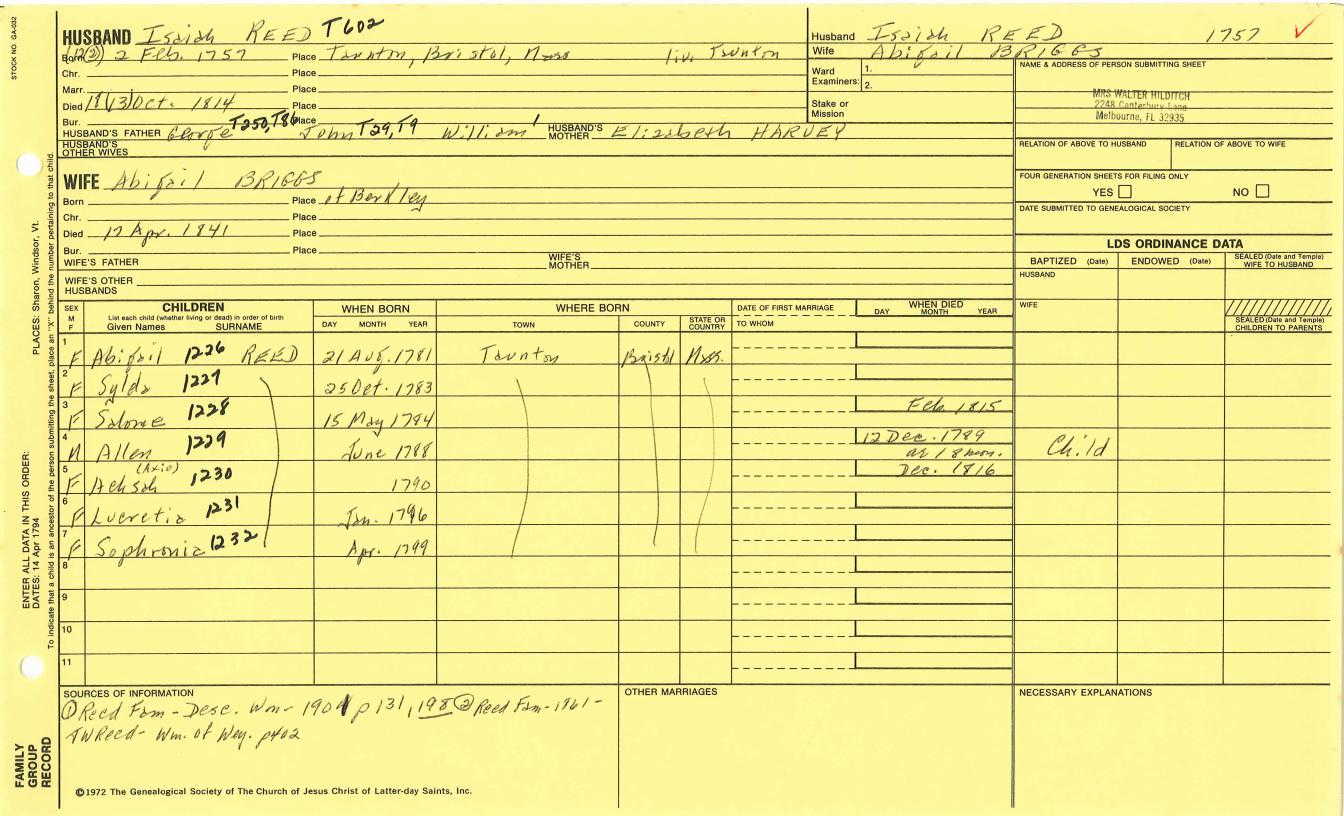 STOCK NO. GA-032
HUSBAND Isaiah REED T602
Born 12(2) 2 Feb. 1757 Place Taunton, Bristol, Mass liv. Taunton
Chr. Place
Marr. Place
Died 18(13) Oct. 1814 Place
Bur. Place
HUSBAND'S FATHER George T250, T86 John T29, T9 William' HUSBAND'S MOTHER Elizabeth HARVEY
HUSBAND'S OTHER WIVES
WIFE Abigail BRIGGS
Born Place of Berkley
Chr. Place
Died 17 Apr. 1841 Place
Bur. Place
WIFE'S FATHER WIFE'S MOTHER
WIFE'S OTHER HUSBANDS
Husband Isaiah REED 1757 ✓
Wife Abigail BRIGGS
Ward Examiners: 1.
2.
Stake or Mission
NAME & ADDRESS OF PERSON SUBMITTING SHEET
MRS WALTER HILDITCH
2248 Canterbury Lane
Melbourne, FL 32935
RELATION OF ABOVE TO HUSBAND RELATION OF ABOVE TO WIFE
FOUR GENERATION SHEETS FOR FILING ONLY
YES NO
DATE SUBMITTED TO GENEALOGICAL SOCIETY
LDS ORDINANCE DATA
BAPTIZED (Date) ENDOWED (Date) SEALED (Date and Temple) WIFE TO HUSBAND
HUSBAND
WIFE
SEALED (Date and Temple) CHILDREN TO PARENTS
SEX M F CHILDREN WHEN BORN WHERE BORN DATE OF FIRST MARRIAGE WHEN DIED
List each child (whether living or dead) in order of birth
Given Names SURNAME DAY MONTH YEAR TOWN COUNTY STATE OR COUNTRY TO WHOM DAY MONTH YEAR
1 F Abigail 1226 REED 21 Aug. 1781 Taunton Bristol Mass.
2 F Sylda 1227 25 Oct. 1783
3 F Salome 1228 15 May 1784 Feb. 1815
4 M Allen 1229 June 1788 12 Dec. 1789 at 18 mon. Child
5 F Achsah (Axie) 1230 1790 Dec. 1816
6 F Lucretia 1231 Jan. 1796
7 F Sophronia 1232 Apr. 1799
8
9
10
11
SOURCES OF INFORMATION
① Reed Fam - Desc. Wm - 1901 p 131, 198 ② Reed Fam - 1961 -
TWReed - Wm. of Wey. p402
OTHER MARRIAGES
NECESSARY EXPLANATIONS
©1972 The Genealogical Society of The Church of Jesus Christ of Latter-day Saints, Inc.
FAMILY GROUP RECORD
ENTER ALL DATA IN THIS ORDER:
DATES: 14 Apr 1794
PLACES: Sharon, Windsor, Vt.
To indicate that a child is an ancestor of the person submitting the sheet, place an "X" behind the number pertaining to that child.